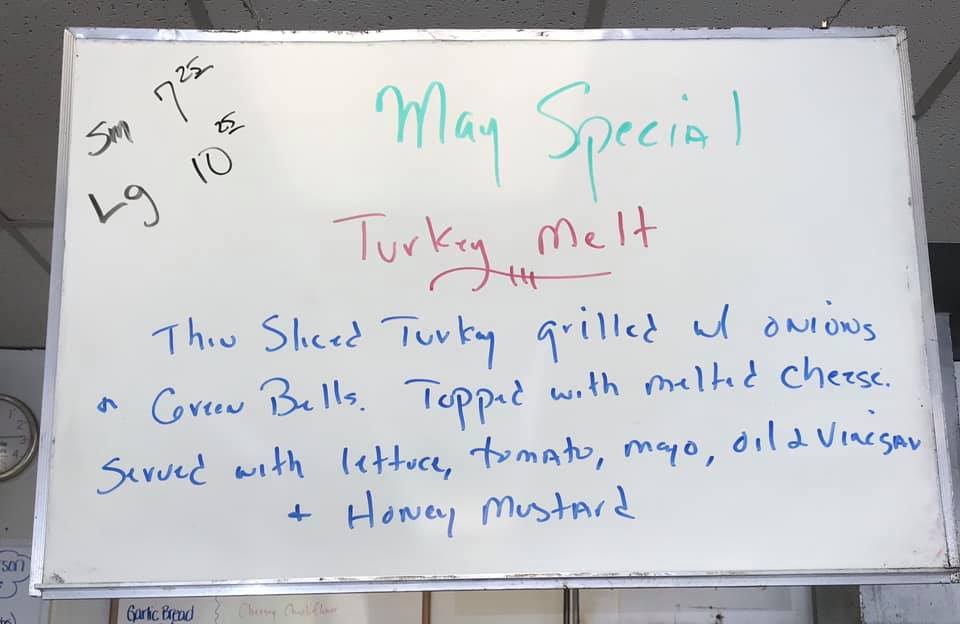 Sm 7 25
Lg 10 25
May Special
Turkey Melt
Thin Sliced Turkey grilled w/ onions
& Green Bells. Topped with melted cheese.
Served with lettuce, tomato, mayo, oil & Vinegar
+ Honey Mustard
1
2
3
4
son
Garlic Bread } Cheesy Cauliflower